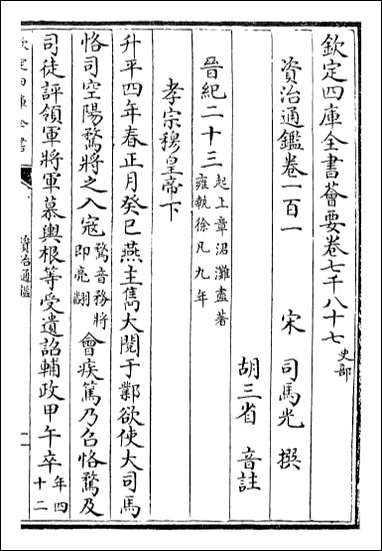 欽定四庫全書薈要卷七千八十七 史部
資治通鑑卷一百一
宋 司馬光 撰
胡三省 音註
晉紀二十三 起上章涒灘盡著雍執徐凡九年
孝宗穆皇帝下
升平四年春正月癸巳燕主雋大閱于鄴欲使大司馬
恪司空陽騖將之入寇 騖音務將即亮翻 會疾篤乃召恪騖及
司徒評領軍將軍慕輿根等受遺詔輔政甲午卒 年四十二
欽定四庫全書
資治通鑑